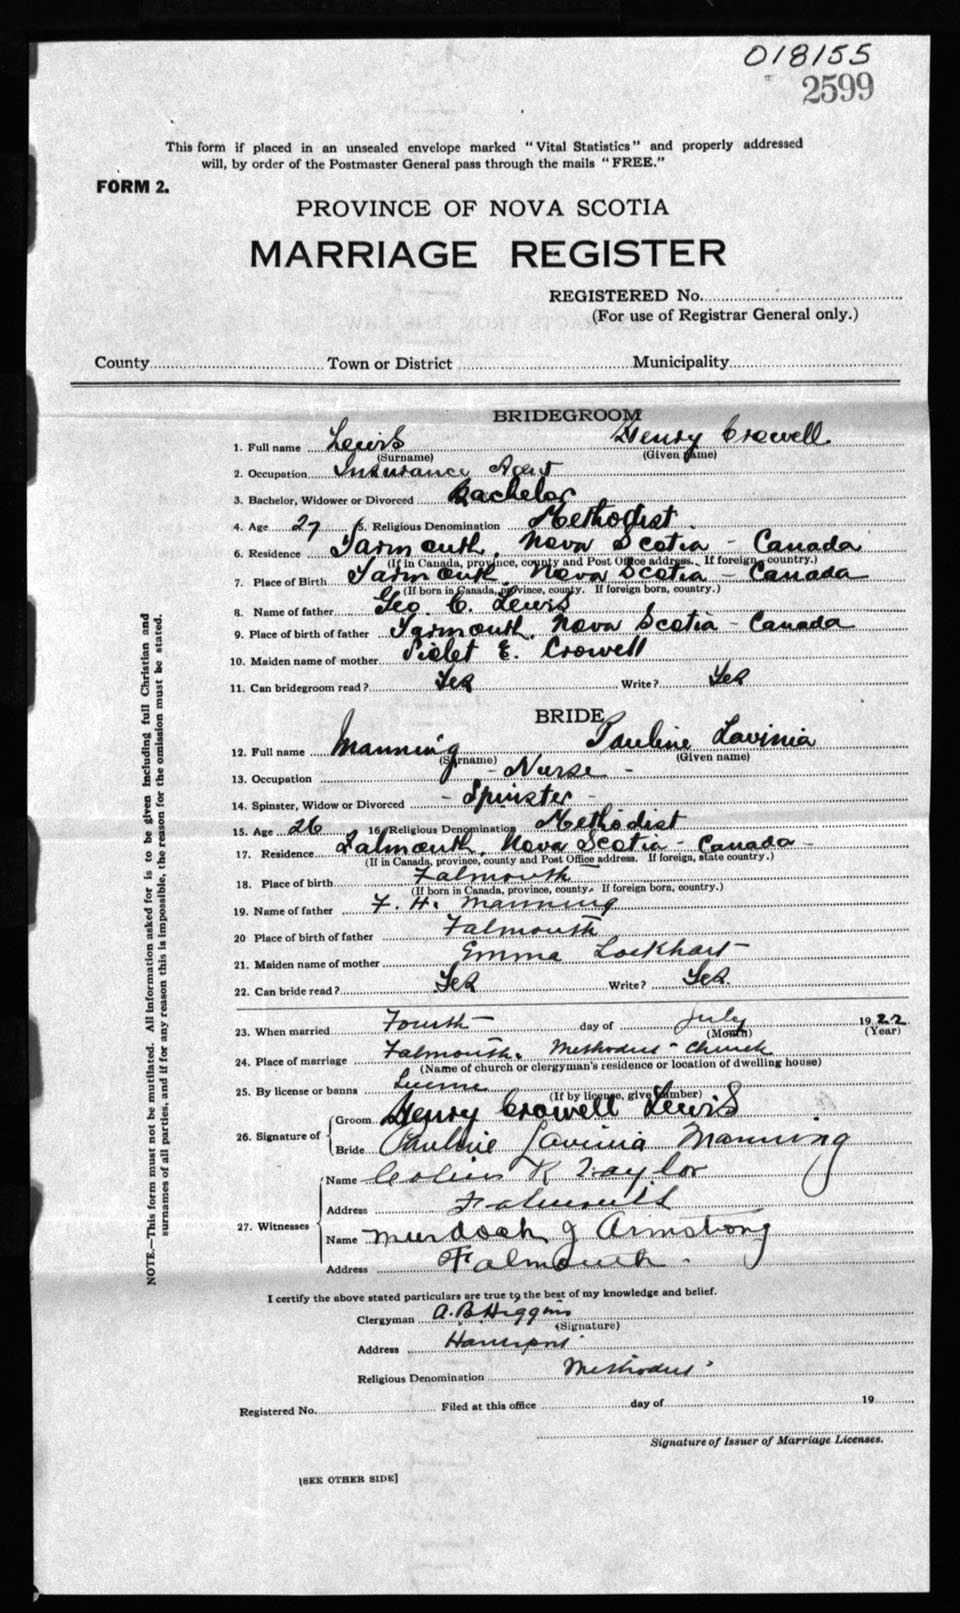 018155
2599
This form if placed in an unsealed envelope marked "Vital Statistics" and properly addressed
will, by order of the Postmaster General pass through the mails "FREE."
FORM 2.
PROVINCE OF NOVA SCOTIA
MARRIAGE REGISTER
REGISTERED No.
(For use of Registrar General only.)
County Town or District Municipality
BRIDEGROOM
1. Full name Lewis Henry Crowell
(Surname) (Given name)
2. Occupation Insurance Agent
3. Bachelor, Widower or Divorced Bachelor
4. Age 27 5. Religious Denomination Methodist
6. Residence Yarmouth, Nova Scotia - Canada
(If in Canada, province, county and Post Office address. If foreign, country.)
7. Place of Birth Yarmouth, Nova Scotia - Canada
(If born in Canada, province, county. If foreign born, country.)
8. Name of father Geo. C. Lewis
9. Place of birth of father Yarmouth, Nova Scotia - Canada
10. Maiden name of mother Violet E. Crowell
11. Can bridegroom read? Yes Write? Yes
BRIDE
12. Full name Manning Pauline Lavinia
(Surname) (Given name)
13. Occupation - Nurse -
14. Spinster, Widow or Divorced - Spinster -
15. Age 26 16 Religious Denomination Methodist
17. Residence Falmouth, Nova Scotia - Canada -
(If in Canada, province, county and Post Office address. If foreign, state country.)
18. Place of birth Falmouth
(If born in Canada, province, county. If foreign born, country.)
19. Name of father F. H. Manning
20 Place of birth of father Falmouth
21. Maiden name of mother Emma Lockhart
22. Can bride read? Yes Write? Yes.
23. When married Fourth day of July 1922
(Month) (Year)
24. Place of marriage Falmouth. Methodist Church
(Name of church or clergyman's residence or location of dwelling house)
25. By license or banns License
(If by license, give number)
26. Signature of Groom Henry Crowell Lewis
Bride Pauline Lavinia Manning
27. Witnesses Name Colin R Taylor
Address Falmouth
Name Murdoch J Armstrong
Address Falmouth.
I certify the above stated particulars are true to the best of my knowledge and belief.
Clergyman A. B. Higgins
(Signature)
Address Hantsport
Religious Denomination Methodist
Registered No. Filed at this office day of 19
Signature of Issuer of Marriage Licenses.
[SEE OTHER SIDE]
NOTE.—This form must not be mutilated. All information asked for is to be given including full Christian and
surnames of all parties, and if for any reason this is impossible, the reason for the omission must be stated.